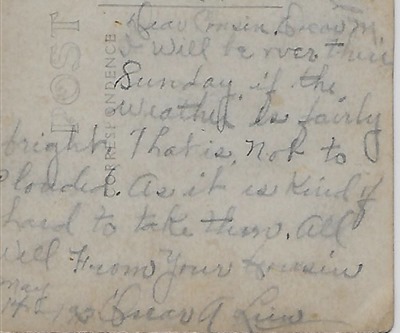 POST
CORRESPONDENCE
Dear Cousin. Oscar M.
I will be over this
Sunday, if the
Weather is fairly
bright. That is, Not to
Clouded. As it is Kind of
hard to take them. All
Well From Your Cousin
May
Oscar A